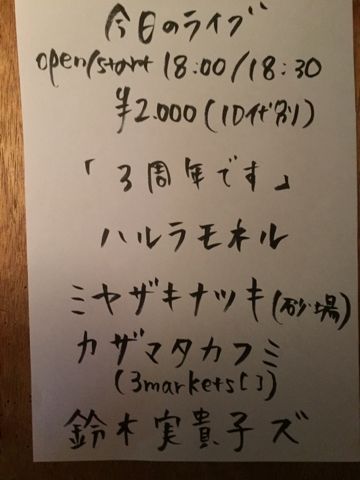 今日のライブ
open/start 18:00/18:30
¥2.000(1D代別)
「3周年です」
ハルラモネル
ミヤザキナツキ(砂場)
カザマタカフミ
(3markets[])
鈴木実貴子ズ